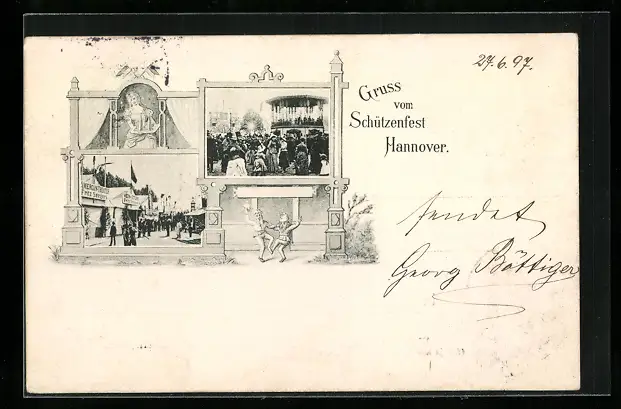 27.6.97.
Gruss
vom
Schützenfest
Hannover.
sendet
Georg Böttiger